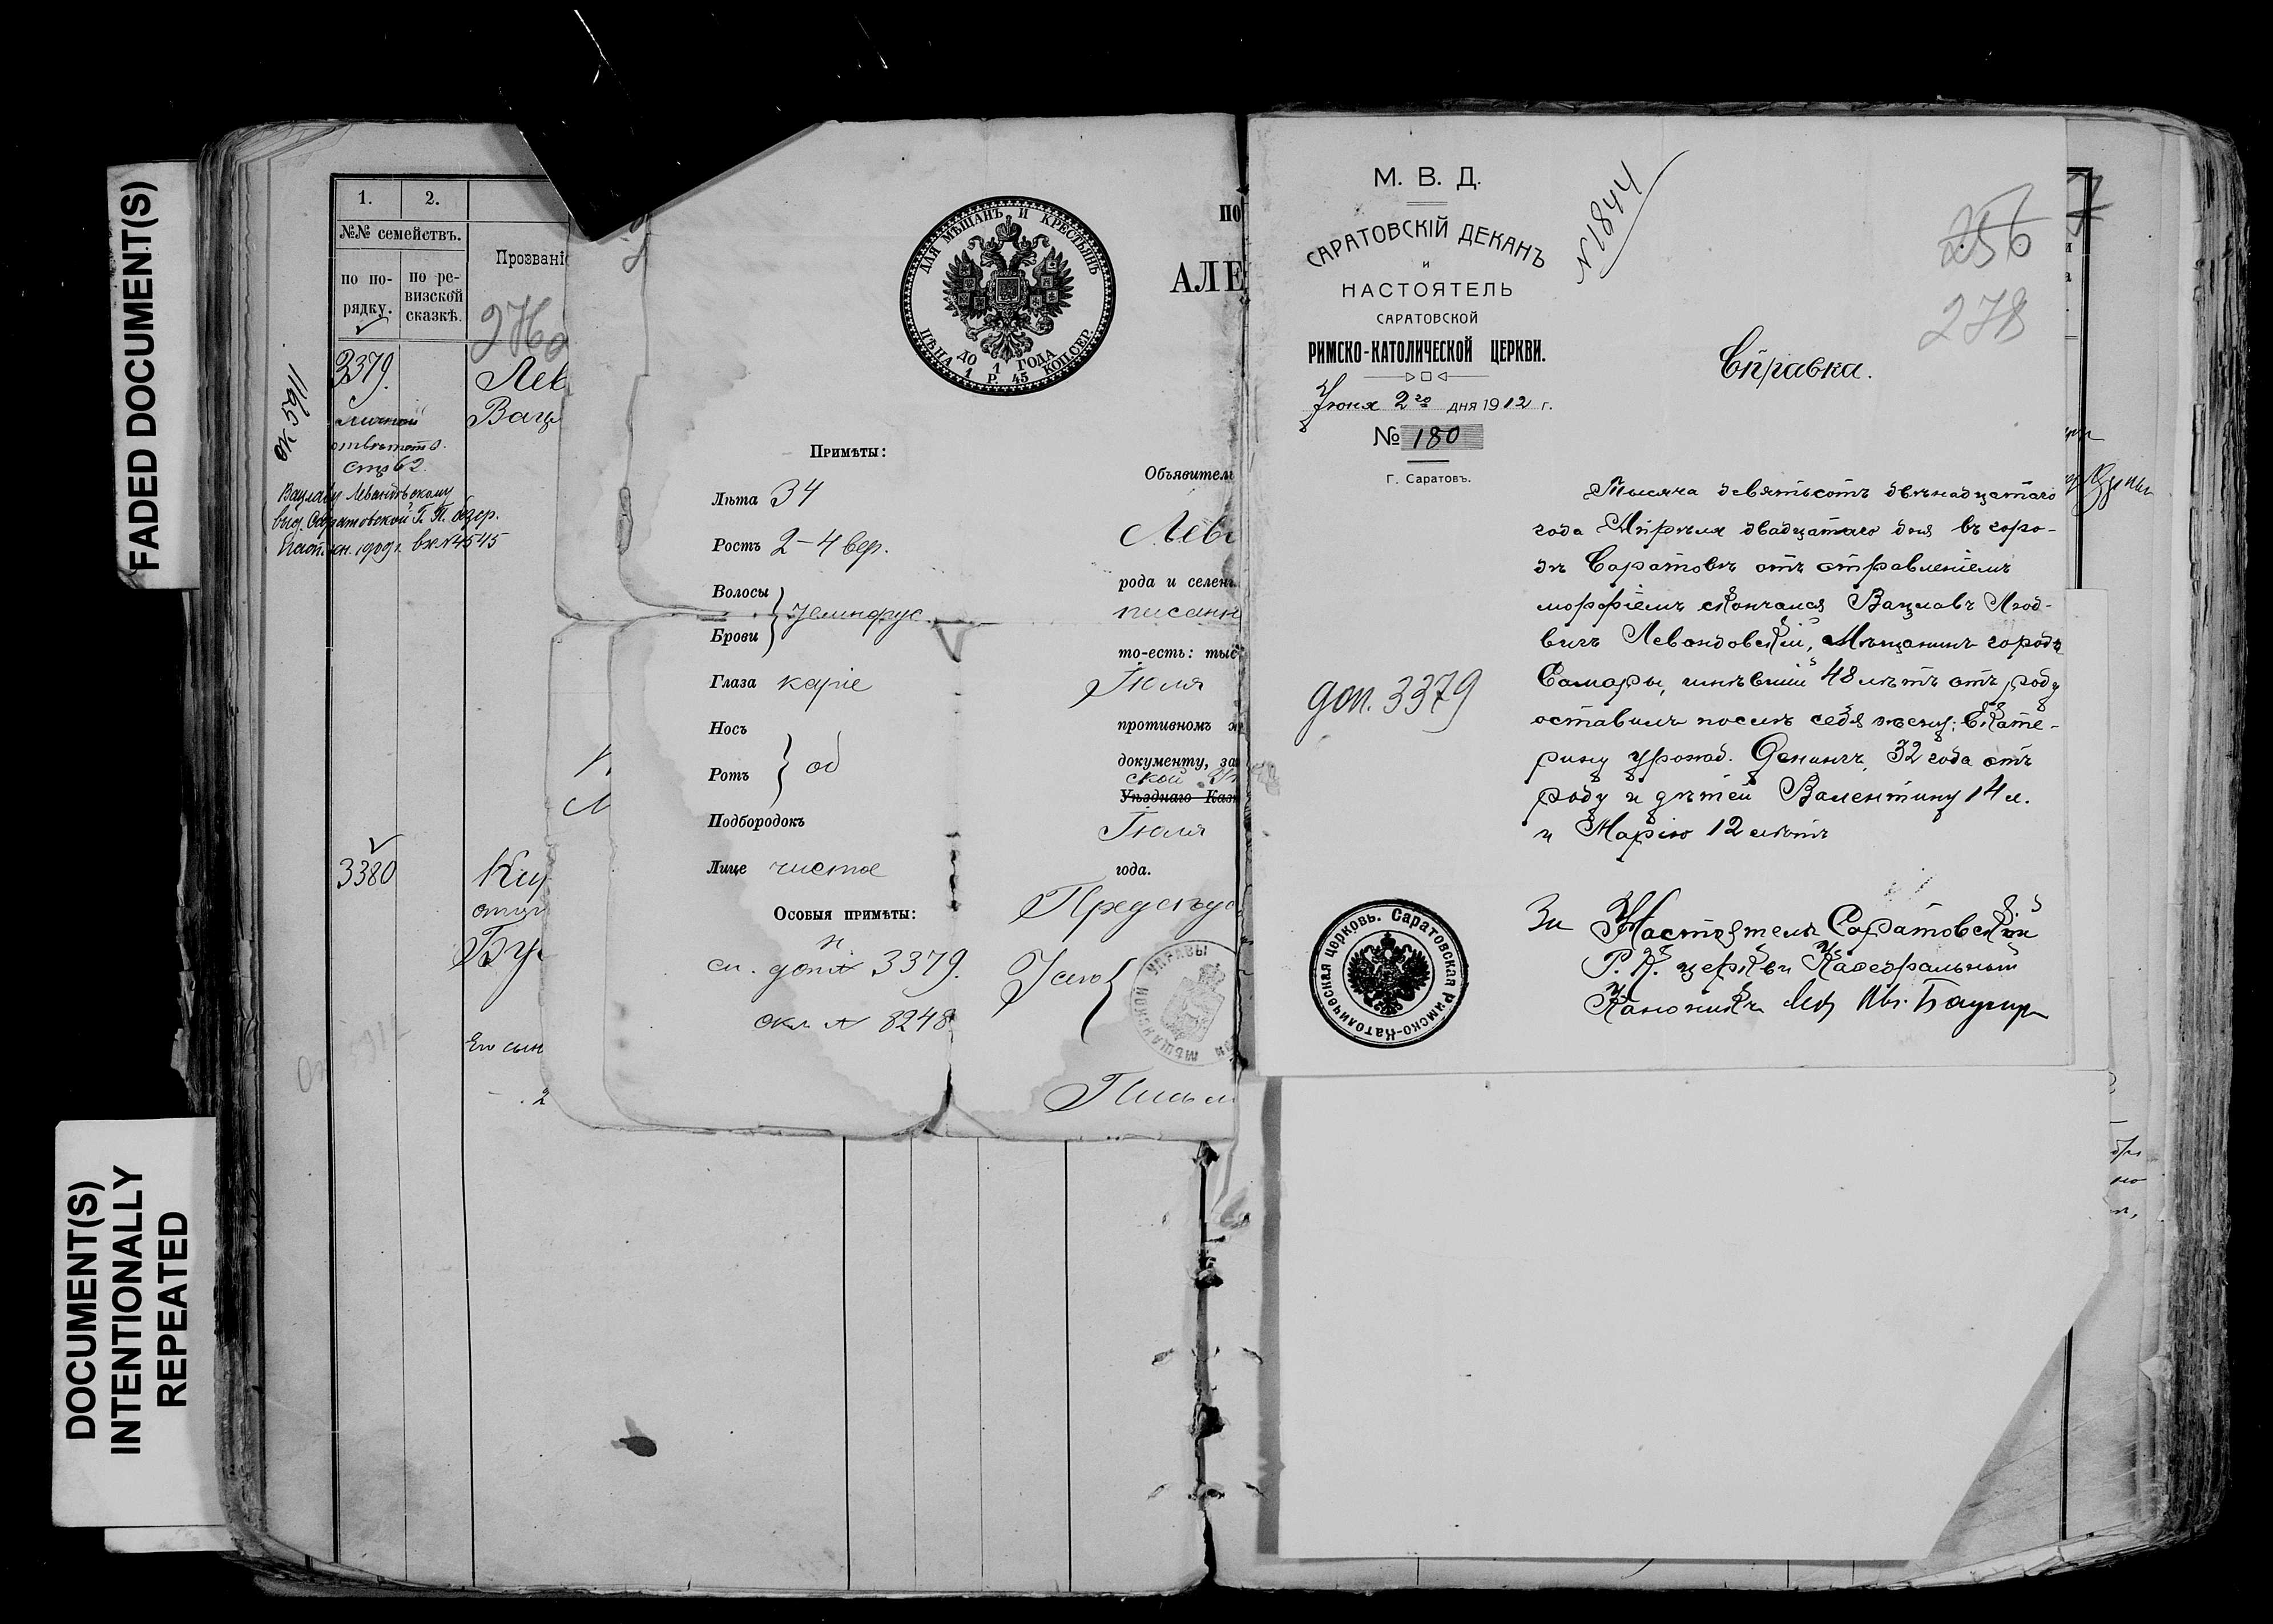 FADED DOCUMENT(S)
DOCUMENT(S)
INTENTIONALLY
REPEATED
1.
2.
№№ семействъ.
по по-
рядку.
по ре-
визской
сказкѣ.
Прозвані
3379.
Лев
Вацл
стр 62.
Вацлаву Левандовскому
выд. Саратовской Г. П.
1909 г. вх № 4545
3380
Его сын
2
ДЛЯ МѢЩАНЪ И КРЕСТЬЯНЪ
ЦѢНА ДО 1 ГОДА
1 Р. 45 КОП. СЕР.
ПО
АЛЕ
Примѣты:
Лѣта 34
Ростъ 2-4 вер.
Волосы
Брови
темнорус
Глаза каріе
Носъ
Ротъ
об
Подбородокъ
Лице чистое
Особыя примѣты:
3379.
окл. № 8248
Объявител
Лева
рода и селен
писанн
то-есть: тыс
Іюля
противномъ
документу, за
ской
Уѣзднаго Каз
Іюля
года.
УПРАВЫ
М. В. Д.
САРАТОВСКІЙ ДЕКАНЪ
и
НАСТОЯТЕЛЬ
САРАТОВСКОЙ
РИМСКО-КАТОЛИЧЕСКОЙ ЦЕРКВИ.
Іюня 2го дня 1912 г.
№ 180
Г. Саратовъ.
№ 1844
256
278
Справка.
Тысяча девятьсотъ двѣнадцатаго
года Апрѣля двадцатаго дня въ горо-
дѣ Саратовѣ отъ отравленіемъ
морфіемъ скончался Вацлавъ Люд-
вигъ Левандовскій, Мѣщанинъ города
Самары, имѣвшій 48 лѣтъ отъ роду
оставилъ послѣ себя жену: Екате-
рину урожд. 32 года отъ
роду и дѣтей Валентину 14 л.
и Марію 12 лѣтъ
доп. 3379
За Настоятеля Саратовской
Р. К. церкви Каѳедральный
Каноникъ
Саратовская Римско-Католическая церковь.